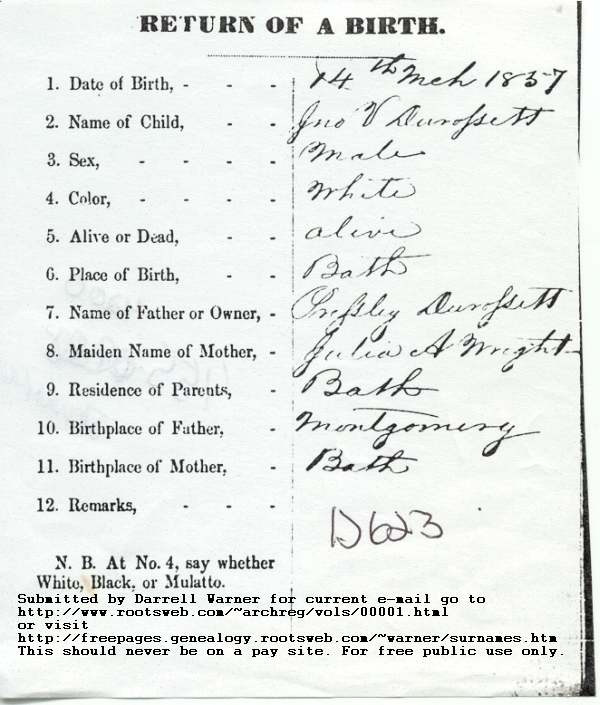 RETURN OF A BIRTH.
1. Date of Birth, - - - 14th Mch 1857
2. Name of Child, - - Jno V Durossett
3. Sex, - - - - Male
4. Color, - - - - White
5. Alive or Dead, - - alive
6. Place of Birth, - - Bath
7. Name of Father or Owner, - Pressley Durossett
8. Maiden Name of Mother, - Julia A Wright
9. Residence of Parents, - Bath
10. Birthplace of Father, - Montgomery
11. Birthplace of Mother, - Bath
12. Remarks, - - -
D623
N. B. At No. 4, say whether
White, Black, or Mulatto.
Submitted by Darrell Warner for current e-mail go to
http://www.rootsweb.com/~archreg/vols/00001.html
or visit
http://freepages.genealogy.rootsweb.com/~warner/surnames.htm
This should never be on a pay site. For free public use only.